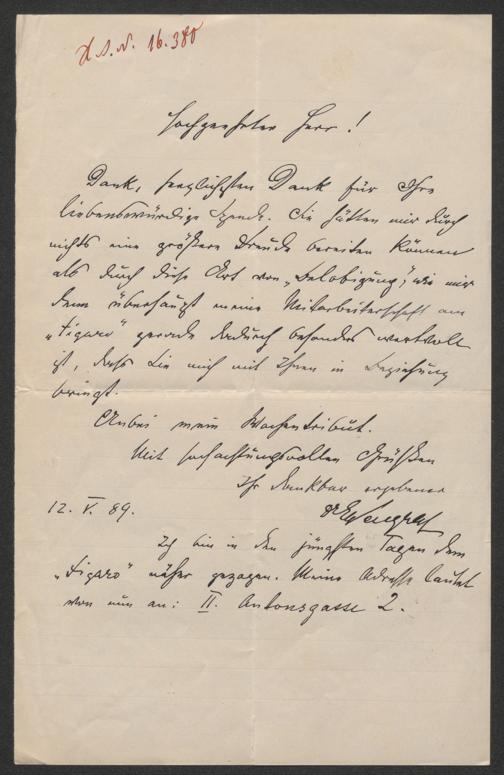 H.I.N. 16.380
Hochgeehrter Herr!
Dank, herzlichsten Dank für Ihre
liebenswürdige Spende. Sie hätten mir durch
nichts eine größere Freude bereiten können
als durch diese Art von „Belobigung“, wie mir
denn überhaupt meine Mitarbeiterschaft am
„Figaro“ gerade dadurch besonders wertvoll
ist, dass sie mich mit Ihnen in Beziehung
bringt.
Anbei mein Wochentribut.
Mit hochachtungsvollen Grüßen
Ihr dankbar ergebener
12. V. 89.
Ich bin in den jüngsten Tagen dem
„Figaro“ näher gezogen. Meine Adresse lautet
von nun an: II. Antonsgasse 2.